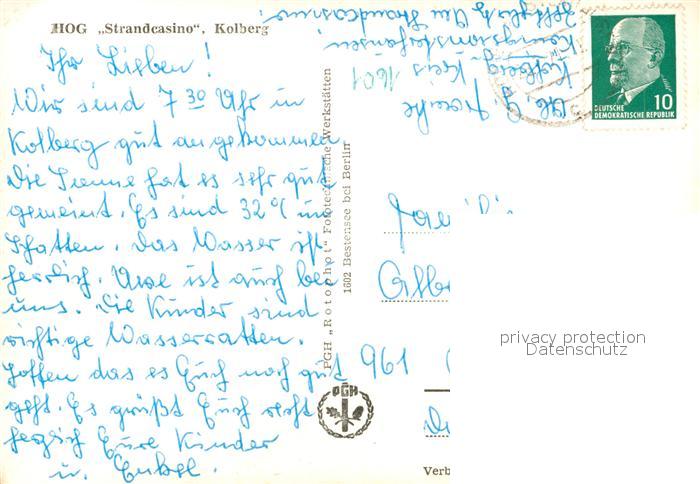 HOG „Strandcasino", Kolberg
Ihr Lieben!
Wir sind 7 30 Uhr in
Kolberg gut angekommen.
Die Sonne hat es sehr gut
gemeint. Es sind 32 °C im
Schatten. Das Wasser ist
herrlich. Uwe ist auch bei
uns. Die Kinder sind
richtige Wasserratten.
Hoffen das es Euch noch gut
geht. Es grüßt Euch recht
herzlich Eure Kinder
u. Enkel.
PGH „Rotophot" Fototechnische Werkstätten
1602 Bestensee bei Berlin
PGH
Abs. G.
1601 Kolberg Kreis
Königswusterhausen
Zeltplatz Am Strandcasino
DEUTSCHE
DEMOKRATISCHE REPUBLIK
10
Fam
961
Verb
privacy protection
Datenschutz